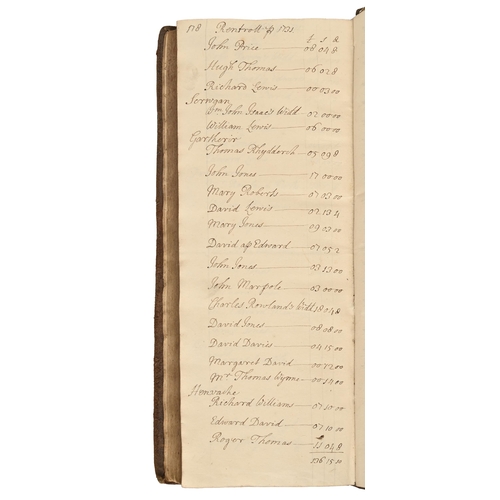 178 Rentroll p 1721
£ s d
John Price 08 04 8
Hugh Thomas 06 02 8
Richard Lewis 00 03 00
Serregan
Wm John Isaac's Widd 02 00 00
William Lewis 06 00 00
Garthvir
Thomas Rhydderch 05 09 8
John Jones 17 00 00
Mary Roberts 07 03 00
David Lewis 02 13 4
Mary Jones 09 03 00
David ap Edward 07 05 2
John Jones 03 13 00
John Marpole 03 00 00
Charles Rowland's Widd 18 04 8
David Jones 08 08 00
David Davies 04 15 00
Margaret David 00 12 00
Mr Thomas Wynne 00 14 00
Richard Williams 07 10 00
Edward David 07 10 00
Roger Thomas 11 04 8
136 15